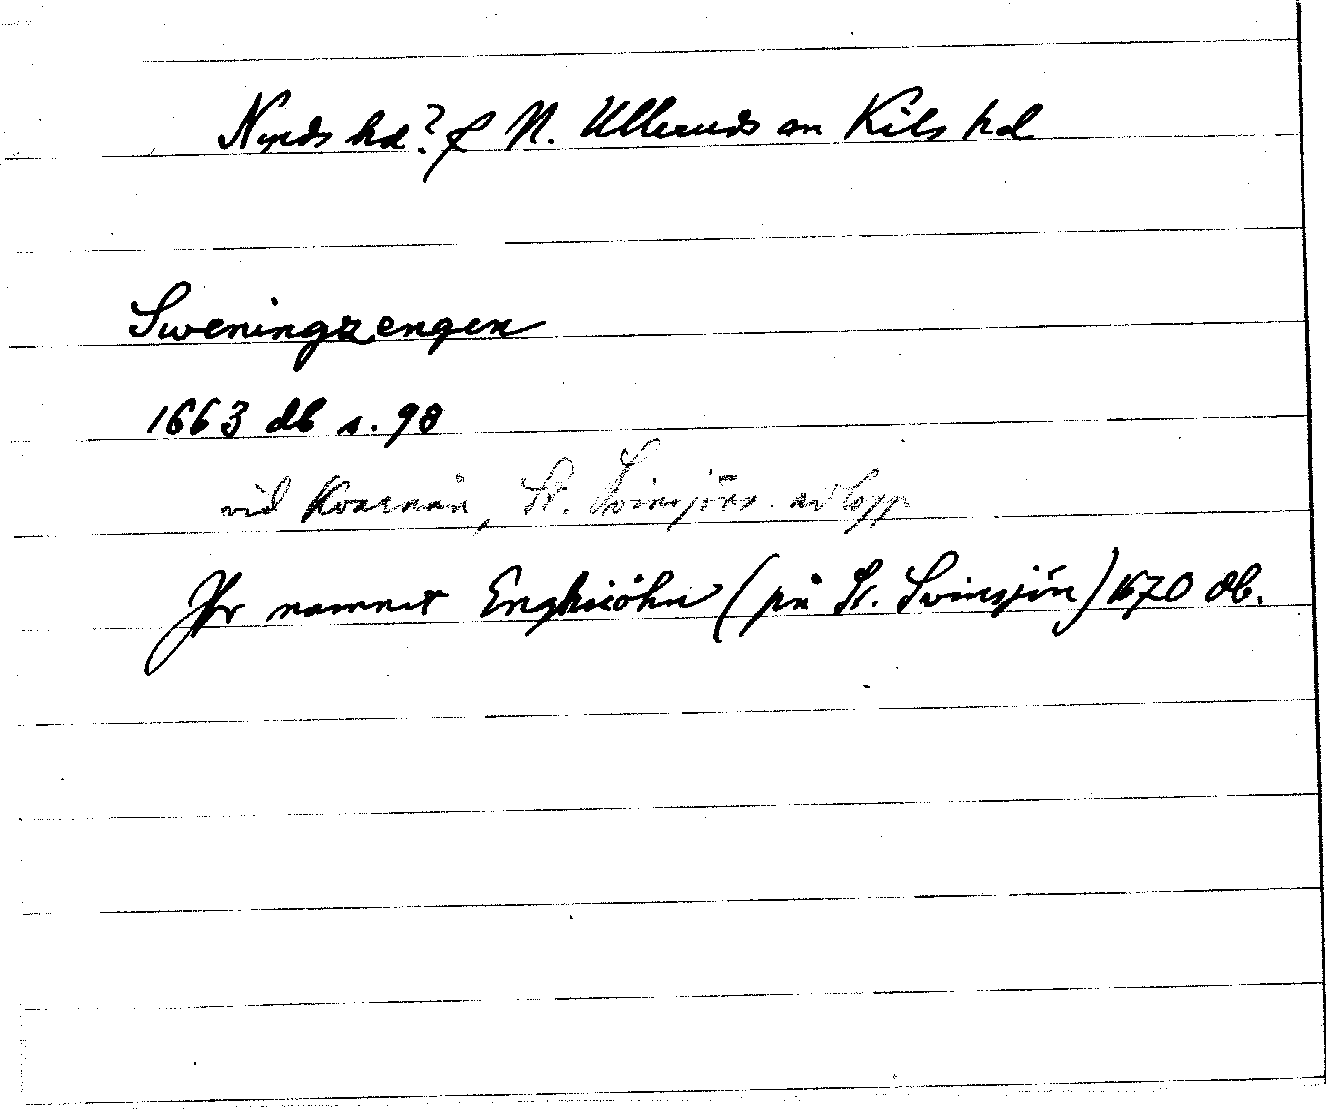 Nyeds hd? f N. Ulleruds sn Kils hd
Sweningzengen
1663 db s. 98
vid Kvarnån, St. Svinsjöns avlopp
Jfr namnet Enghiöhn (på St. Svinsjön) 1670 db.